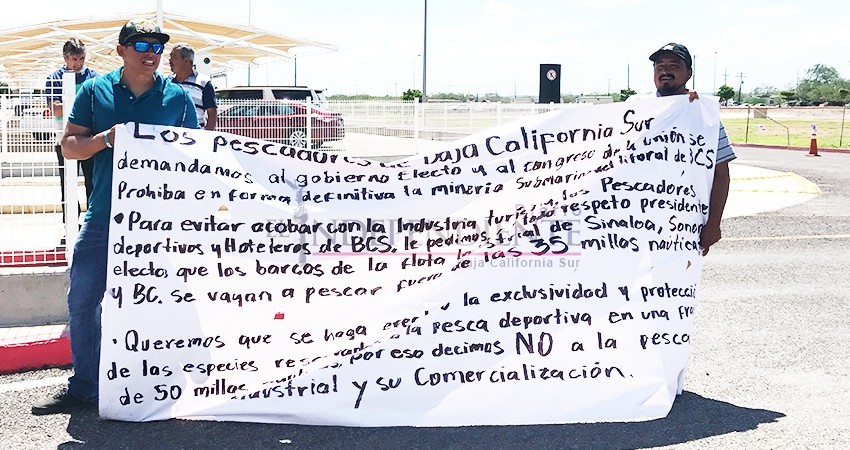 Los pescadores de Baja California Sur
demandamos al gobierno Electo y al congreso de la unión se
Prohiba en forma definitiva la minería Submarina del litoral de BCS
• Para evitar acabar con la Industria turística, los Pescadores
deportivos y Hoteleros de BCS, le pedimos todo respeto presidente
electo, que los barcos de la flota de Sinaloa, Sonora
y BC. se vayan a pescar fuera de las 35 millas náuticas
• Queremos que se haga la exclusividad y protección
de las especies a la pesca deportiva en una
de 50 millas por eso decimos NO a la pesca
industrial y su Comercialización.
INDEPENDIENTE
Baja California Sur